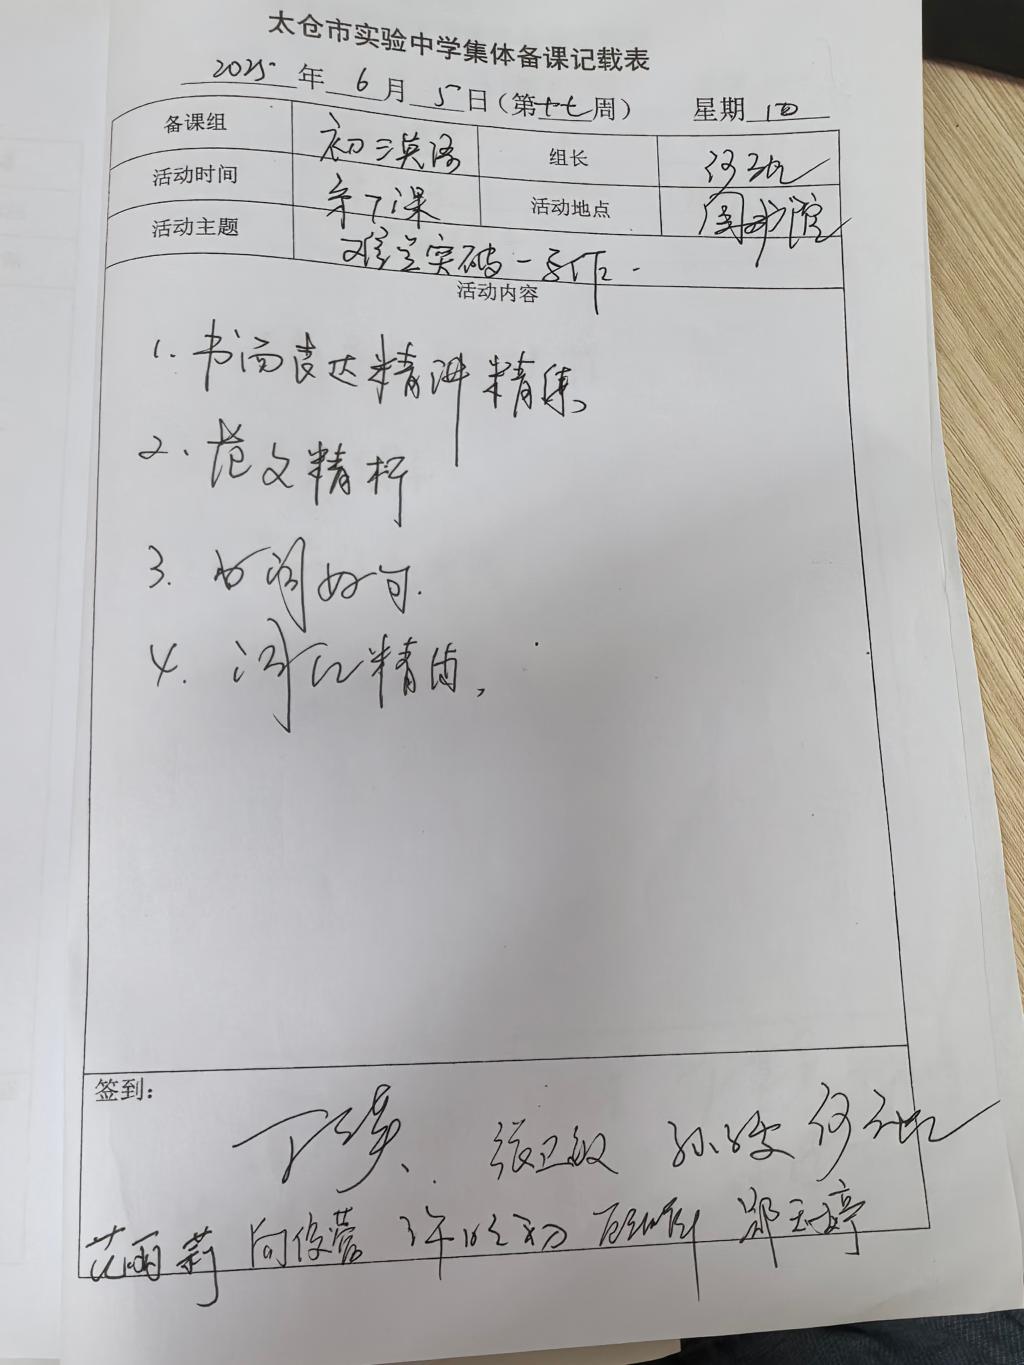 太仓市实验中学集体备课记载表
2025年6月5日(第十七周) 星期四
备课组 初三英语 组长 何
活动时间 第7课 活动地点 图书馆
活动主题 难点突破-写作.
活动内容
1. 书面表达精讲精练
2. 范文精析
3. 好词好句.
4. 词汇精
签到:
丁 张卫敏 孙 何
范丽莉 向俊蕾 许 郑玉婷